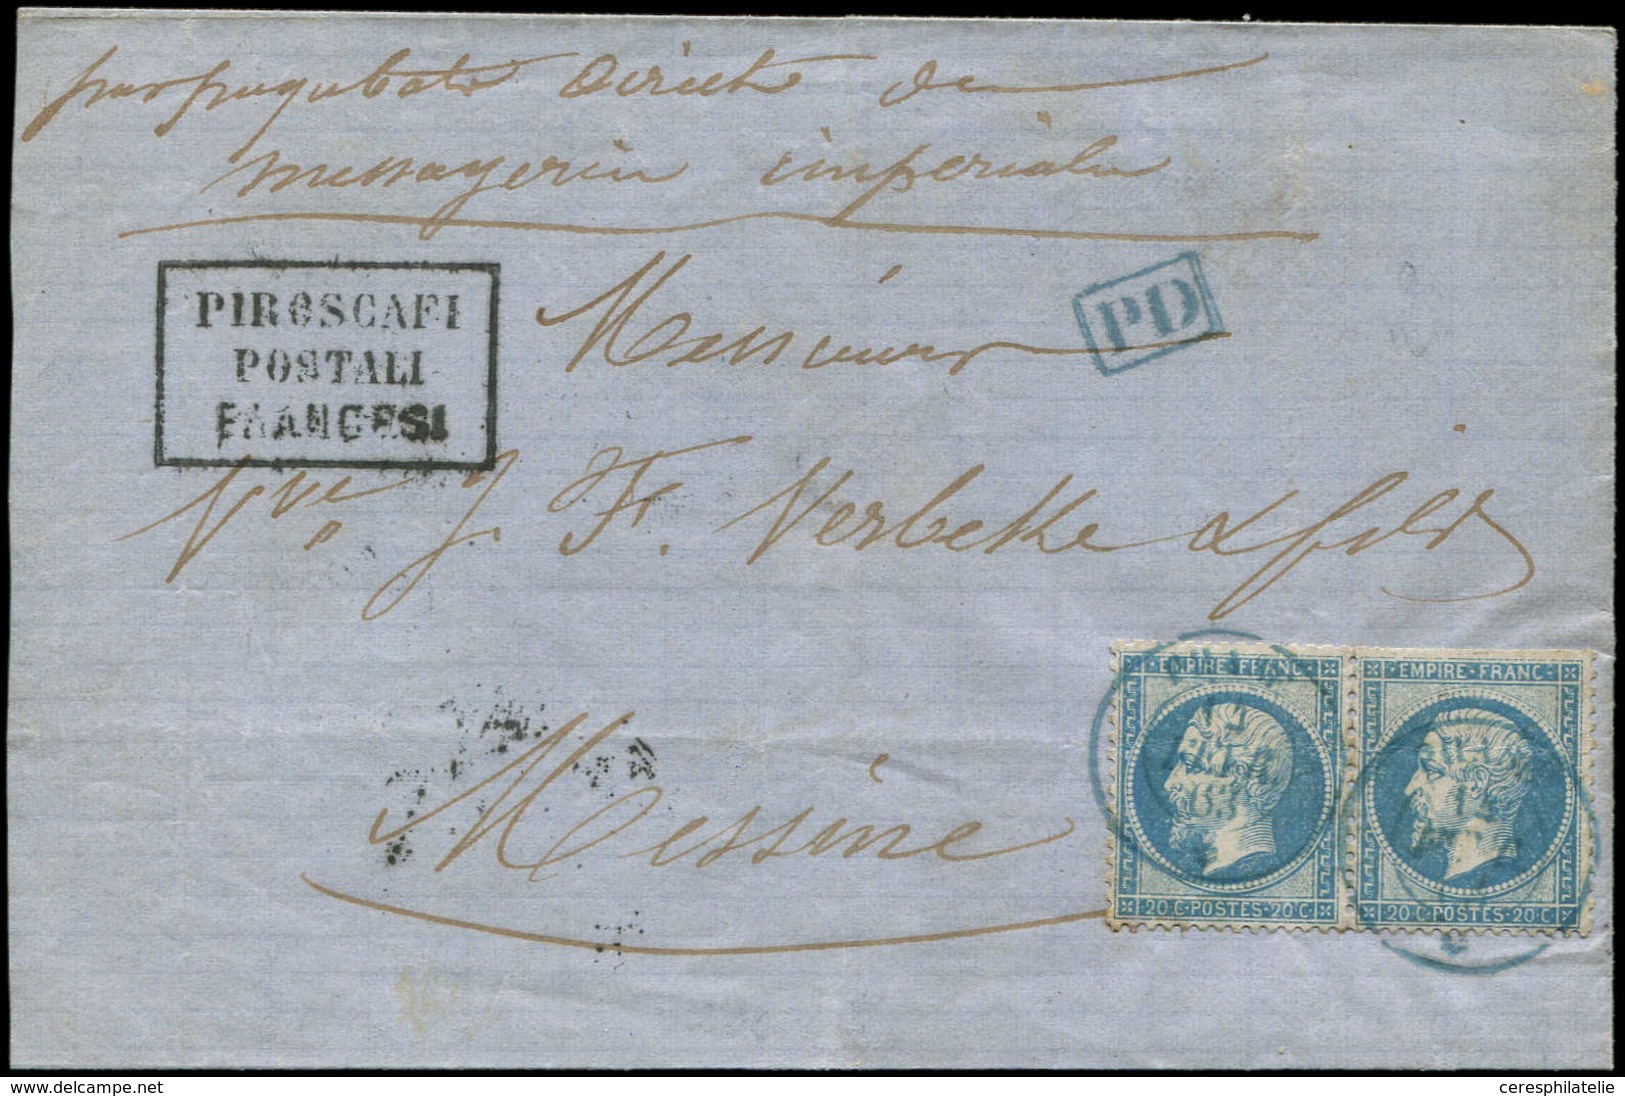 par paquebots directs des
messageries impériales
PIROSCAFI
POSTALI
FRANCESI
PD
Messieurs
Vve J. F. Verbeke & fils
Messine
EMPIRE FRANC
EMPIRE FRANC
20 C POSTES 20 C
20 C POSTES 20 C
delcampe.net
ceresphilatelie